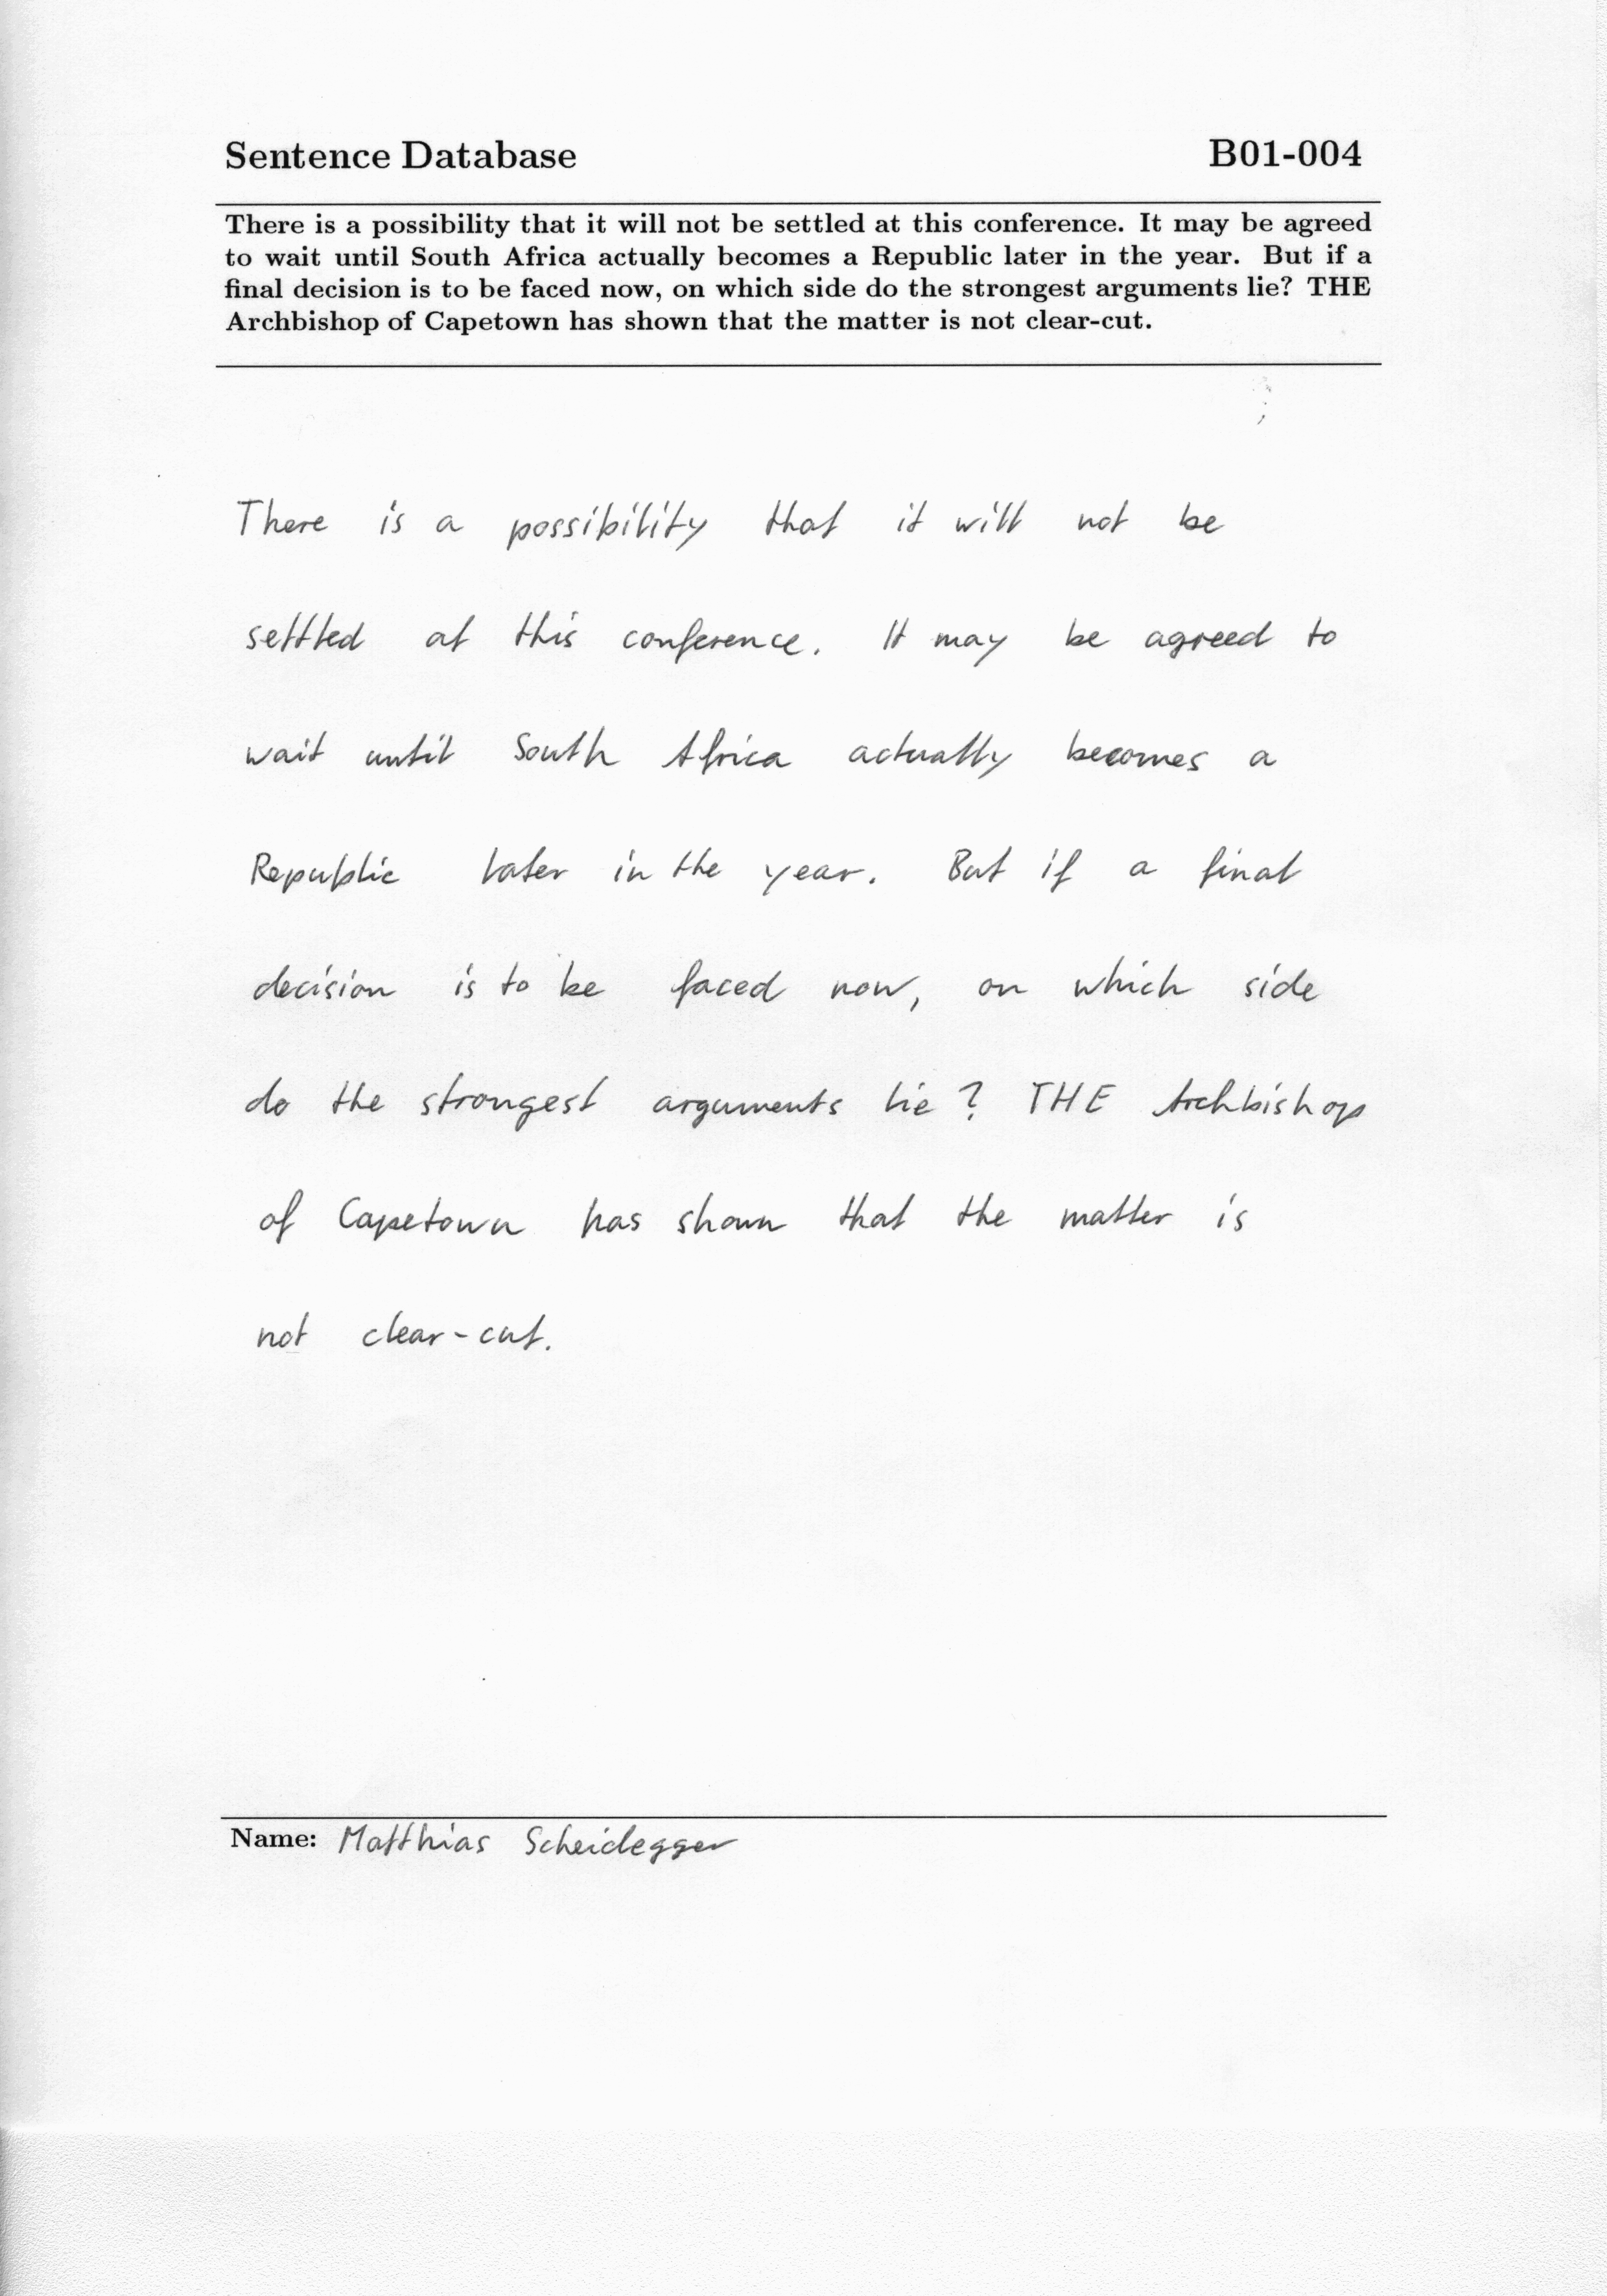 Sentence Database B01-004
There is a possibility that it will not be settled at this conference. It may be agreed
to wait until South Africa actually becomes a Republic later in the year. But if a
final decision is to be faced now, on which side do the strongest arguments lie? THE
Archbishop of Capetown has shown that the matter is not clear-cut.
There is a possibility that it will not be
settled at this conference. It may be agreed to
wait until South Africa actually becomes a
Republic later in the year. But if a final
decision is to be faced now, on which side
do the strongest arguments lie? THE Archbishop
of Capetown has shown that the matter is
not clear-cut.
Name: Matthias Scheidegger